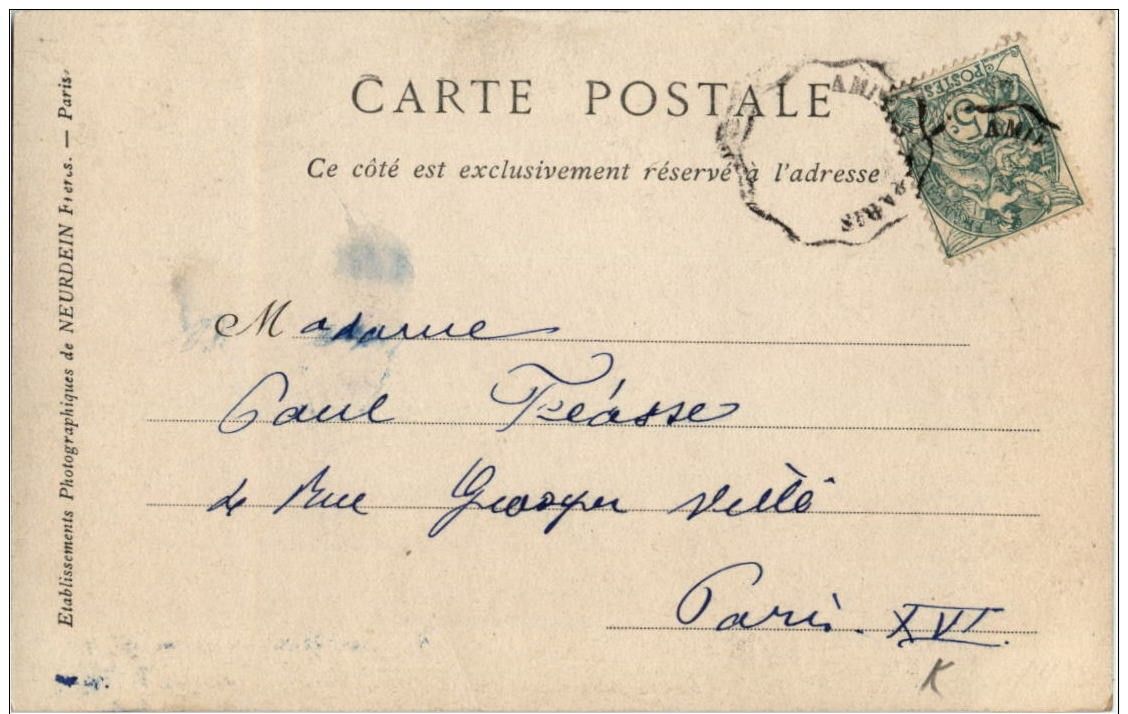 CARTE POSTALE
Ce côté est exclusivement réservé à l'adresse
Etablissements Photographiques de NEURDEIN Frères. — Paris
POSTES
5
AMI
AMI
PARIS
Madame
Paul Tréasse
4 Rue Ville
Paris. XVI.
K